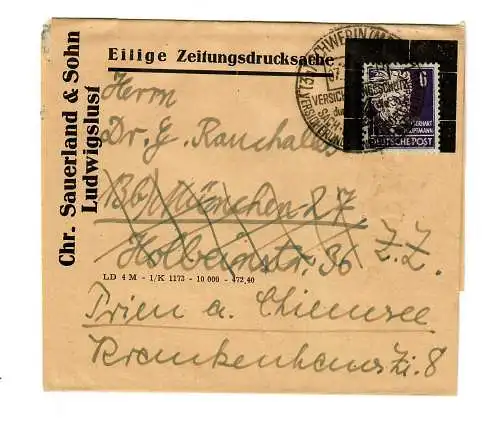 Chr. Sauerland & Sohn
Ludwigslust
Eilige Zeitungsdrucksache
SCHWERIN
VERSICH
6
GERHART
HAUPTMANN
DEUTSCHE POST
Herrn
Dr. G.
13b München 27
Holbeinstr. 36 Z.Z.
LD 4 M - 1/K 1173 - 10 000 - 472,40
Prien a. Chiemsee
Krankenhaus Zi. 8